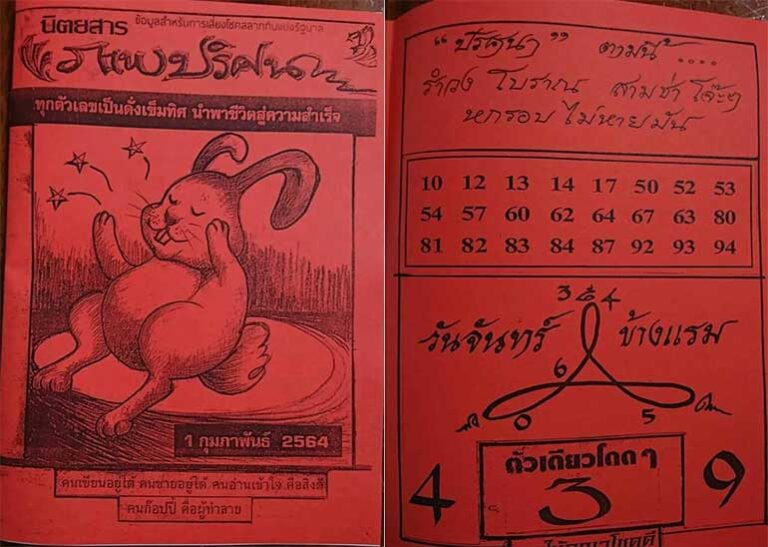 นิตยสาร
ข้อมูลสำหรับการเสี่ยงโชคสลากกินแบ่งรัฐบาล
ทุกตัวเลขเป็นดั่งเข็มทิศ นำพาชีวิตสู่ความสำเร็จ
1 กุมภาพันธ์ 2564
คนเขียนอยู่ได้ คนขายอยู่ได้ คนอ่านเข้าใจ
คนก๊อปปี้ คือผู้ทำลาย
“ ปริศนา ” ตามนี้ ....
รำวง โบราณ สามช่า โจ๊ะๆ
หกรอบ ไม่หายมัน
10 12 13 14 17 50 52 53
54 57 60 62 64 67 63 80
81 82 83 84 87 92 93 94
3 4
วันจันทร์ ข้างแรม
6
0 5
ตัวเดียวโดดๆ
4 3 9